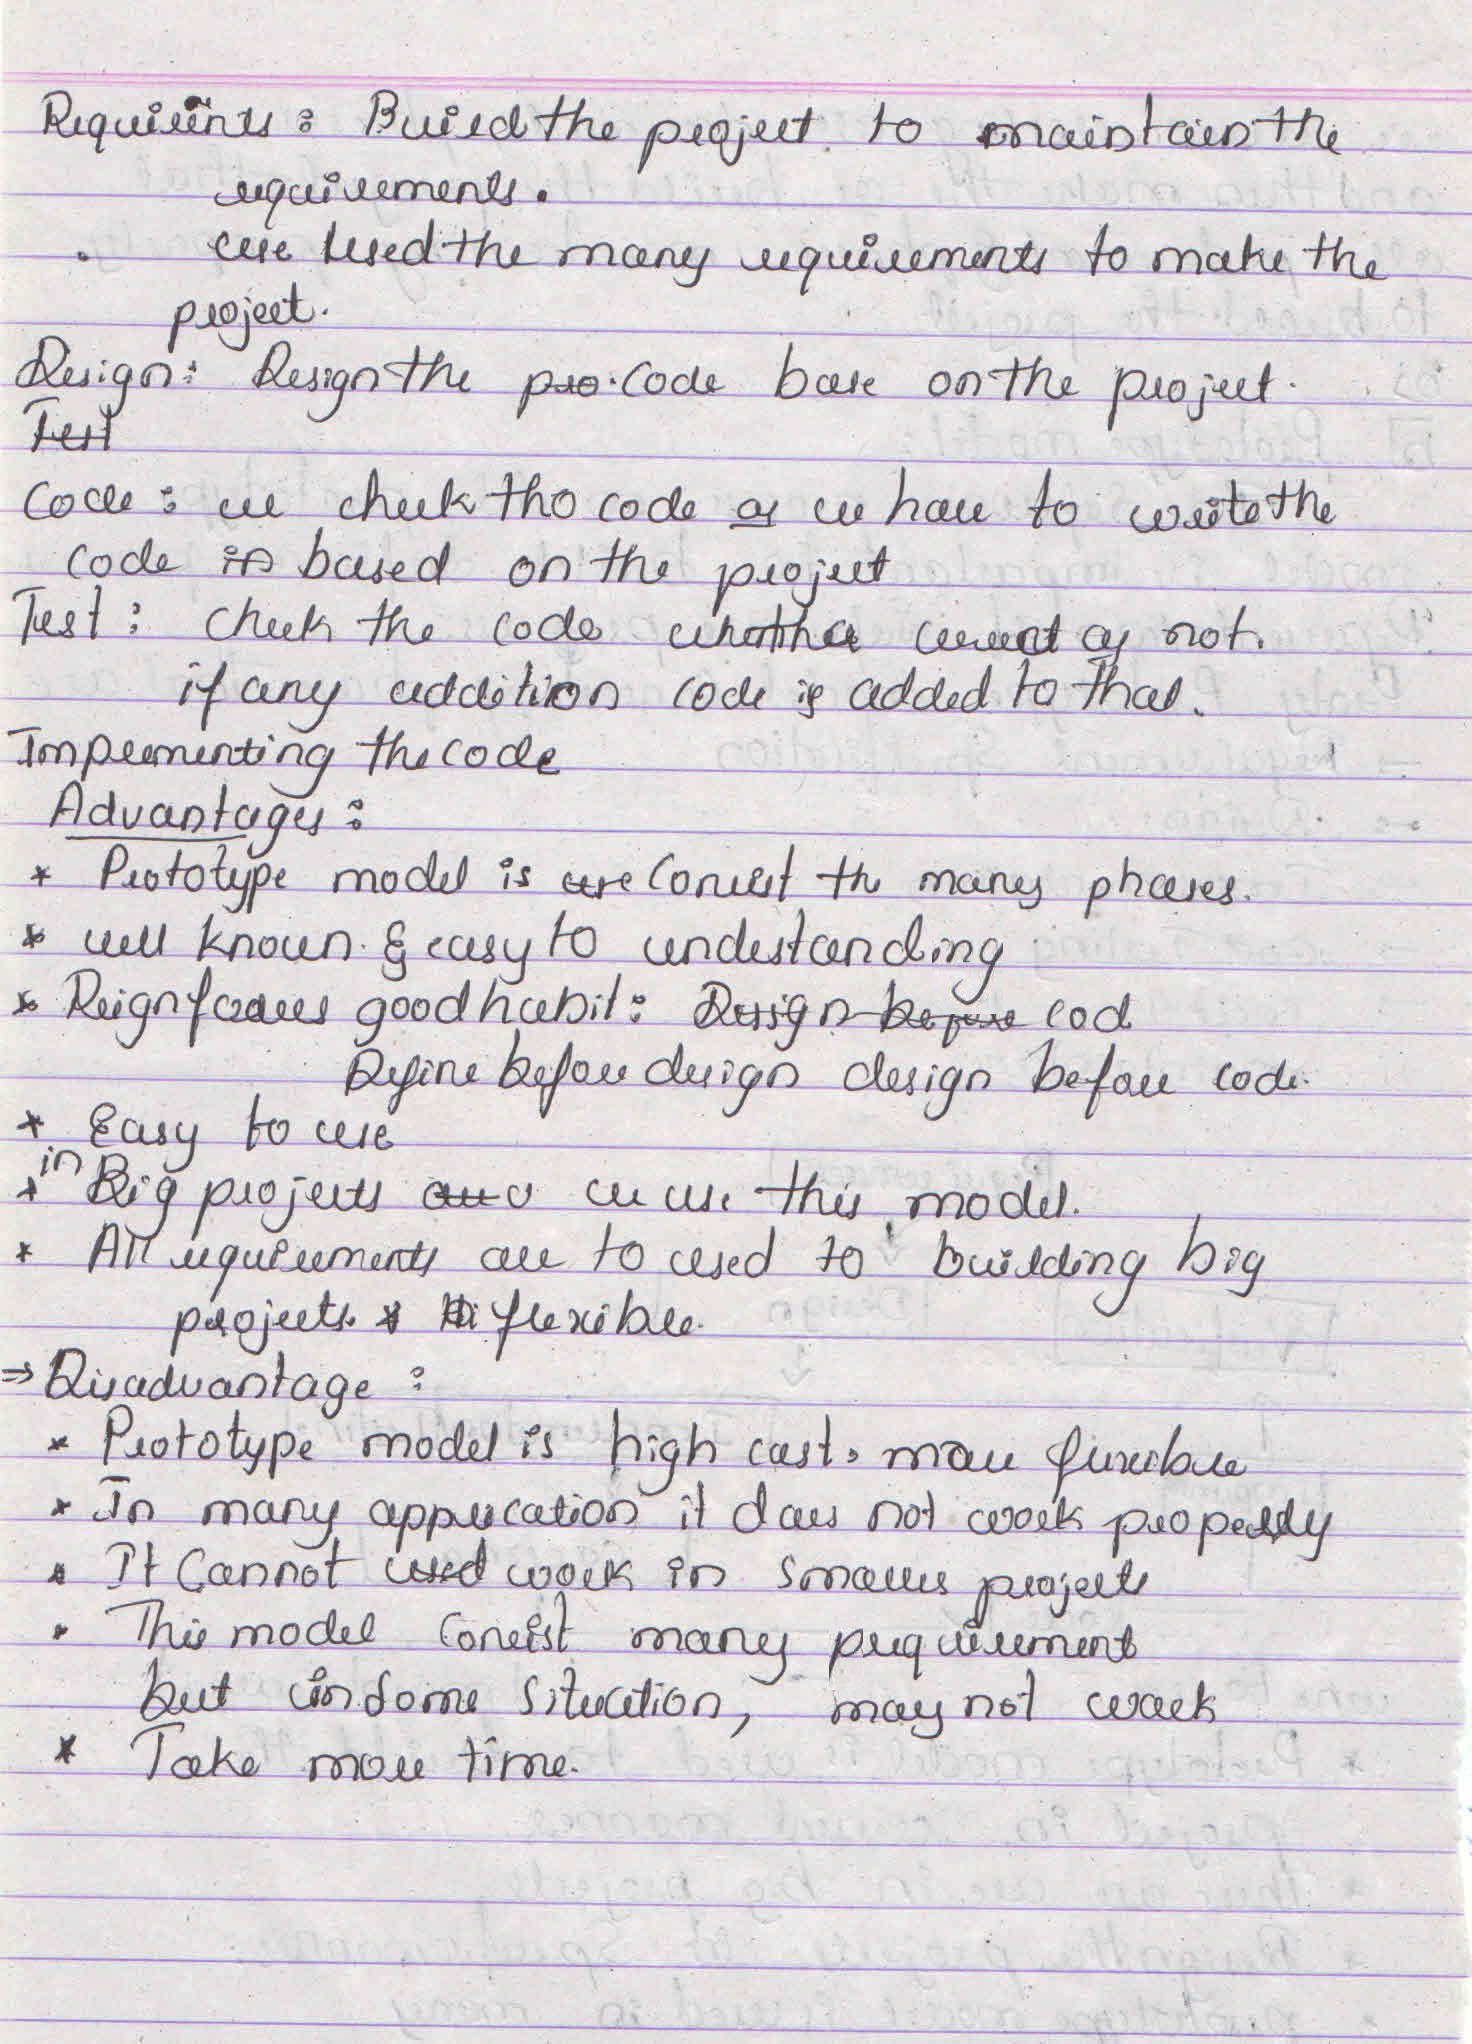 Requirents : Build the project to maintain the
requirements.
. use used the many requirements to make the
project.
Design : Design the pro. code base on the project.
Test
Code : we check the code or we have to write the
code in based on the project
Test : check the code whether correct or not.
if any addition code is added to that.
Implementing the code
Advantages :
* Prototype model is are consist the many phases.
* well known & easy to understanding
* Reignforces good habit : Design before cod
Define before design design before code.
* Easy to use
* in Big projects we use this model.
* All requirements are to used to building big
projects. * flexible.
⇒ Disadvantage :
* Prototype model is high cost. more flexible
* In many application it does not work properly
* It cannot used work in smaller projects
* This model consist many requirement
but in some situation, may not work
* Take more time.